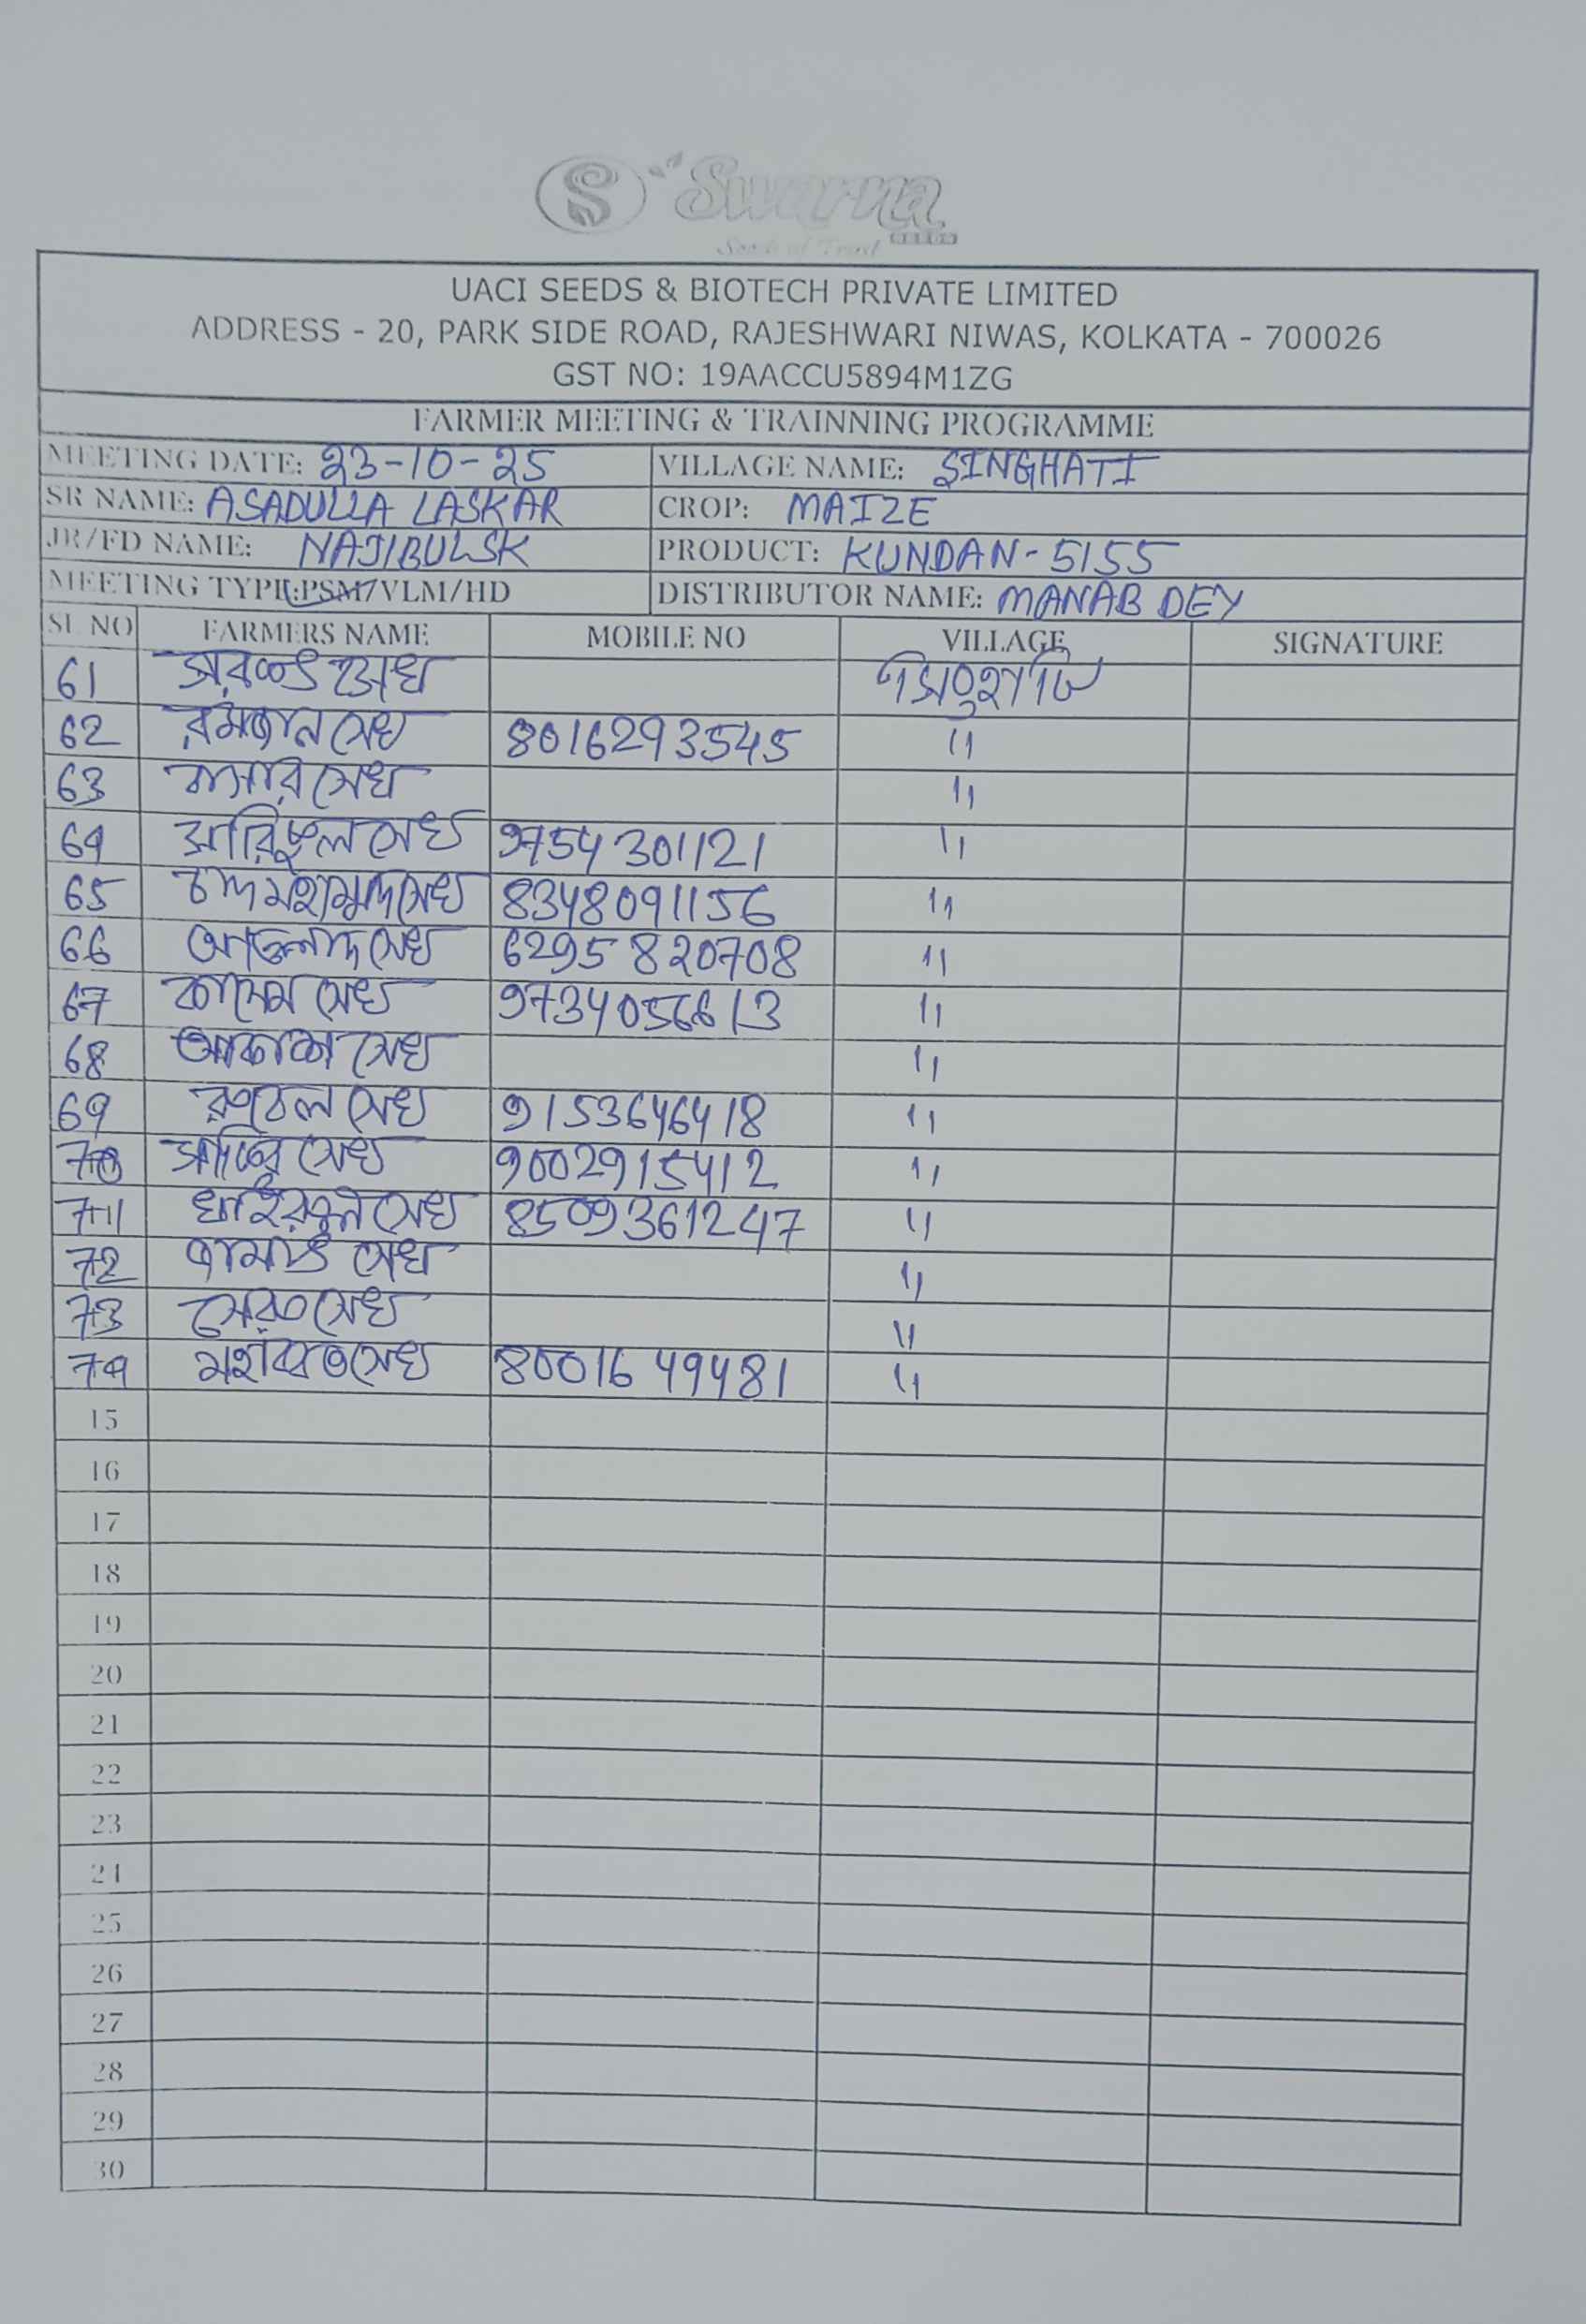 Swarna
Seeds of Trust
UACI SEEDS & BIOTECH PRIVATE LIMITED
ADDRESS - 20, PARK SIDE ROAD, RAJESHWARI NIWAS, KOLKATA - 700026
GST NO: 19AACCU5894M1ZG
FARMER MEETING & TRAINNING PROGRAMME
MEETING DATE: 23-10-25 VILLAGE NAME: SINGHATI
SR NAME: ASADULLA LASKAR CROP: MAIZE
JR/FD NAME: NAJIBULSK PRODUCT: KUNDAN-5155
MEETING TYPE:PSM/VLM/HD DISTRIBUTOR NAME: MANAB DEY
SL NO FARMERS NAME MOBILE NO VILLAGE SIGNATURE
61 সেখ
62 রমজান সেখ 8016293545 "
63 সেখ "
64 সারিফুল সেখ 9754301121 "
65 চাদ মহাম্মদ সেখ 8348091156 "
66 আওলাদ সেখ 6295820708 "
67 কাসেম সেখ 9734056613 "
68 আকাশ সেখ "
69 সেখ 9153646418 "
70 সেখ 9002915412 "
71 খাইরুল সেখ 8509361247 "
72 সেখ "
73 সেখ "
74 সেখ 8001649481 "
15
16
17
18
19
20
21
22
23
24
25
26
27
28
29
30